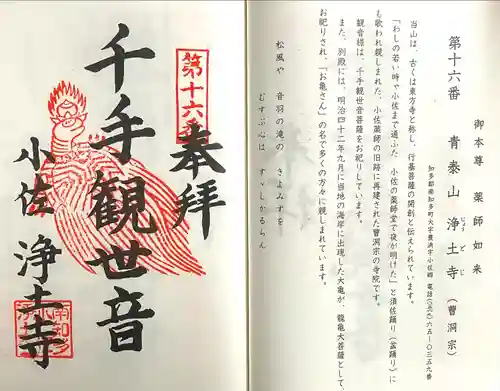 御本尊 薬師如来
第十六番 青泰山 浄土寺（曹洞宗）
じょうどじ
知多郡南知多町大字豊浜字小佐郷 電話（〇五六九）六五―〇三五九番
当山は、古くは東方寺と称し、行基菩薩の開創と伝えられています。
「わしの若い時ゃ小佐まで通ふた 小佐の薬師堂で夜が明けた」と須佐踊り（盆踊り）に
も歌われ親しまれた、小佐薬師の旧跡に再建された曹洞宗の寺院です。
観音様は、千手観世音菩薩をお祀りしています。
また、別殿には、明治四十二年九月に当地の海岸に出現した大亀が、龍亀大菩薩として、
お祀りされ、「お亀さん」の名で多くの方々に親しまれています。
松風や 音羽の滝の きよみずを
むすぶ心は すゞしかるらん
第十六番
奉拝
千手観世音
小佐 浄土寺